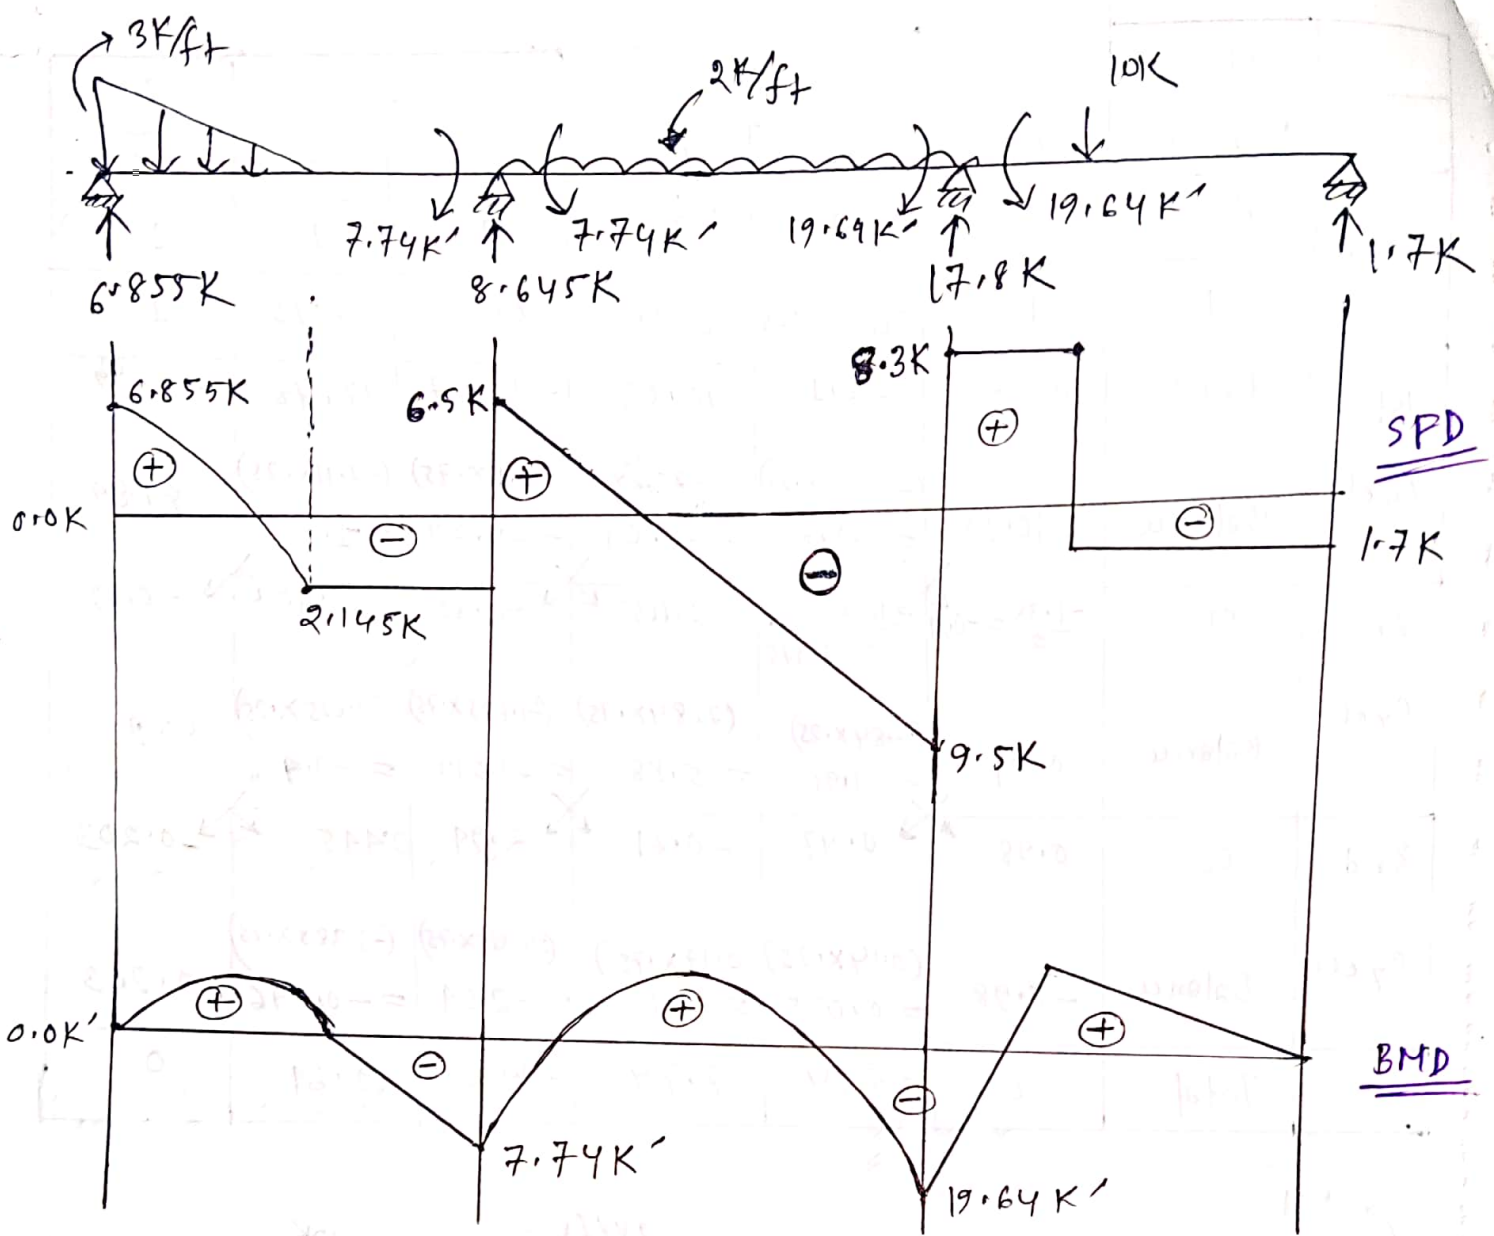 3K/ft
2K/ft
10K
7.74K'
7.74K'
19.64K'
19.64K'
6.855K
8.645K
17.8K
1.7K
6.855K
6.5K
8.3K
+
+
+
SFD
0.0K
-
-
-
1.7K
2.145K
9.5K
+
+
+
0.0K'
-
-
BMD
7.74K'
19.64K'